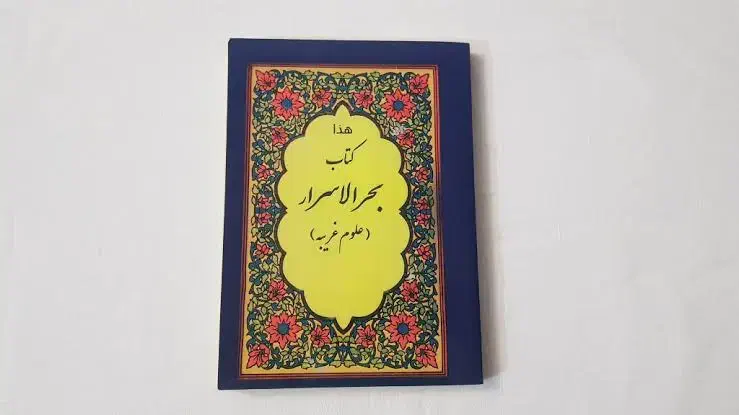 هذا
کتاب
بحر الاسرار
(علوم غریبه)